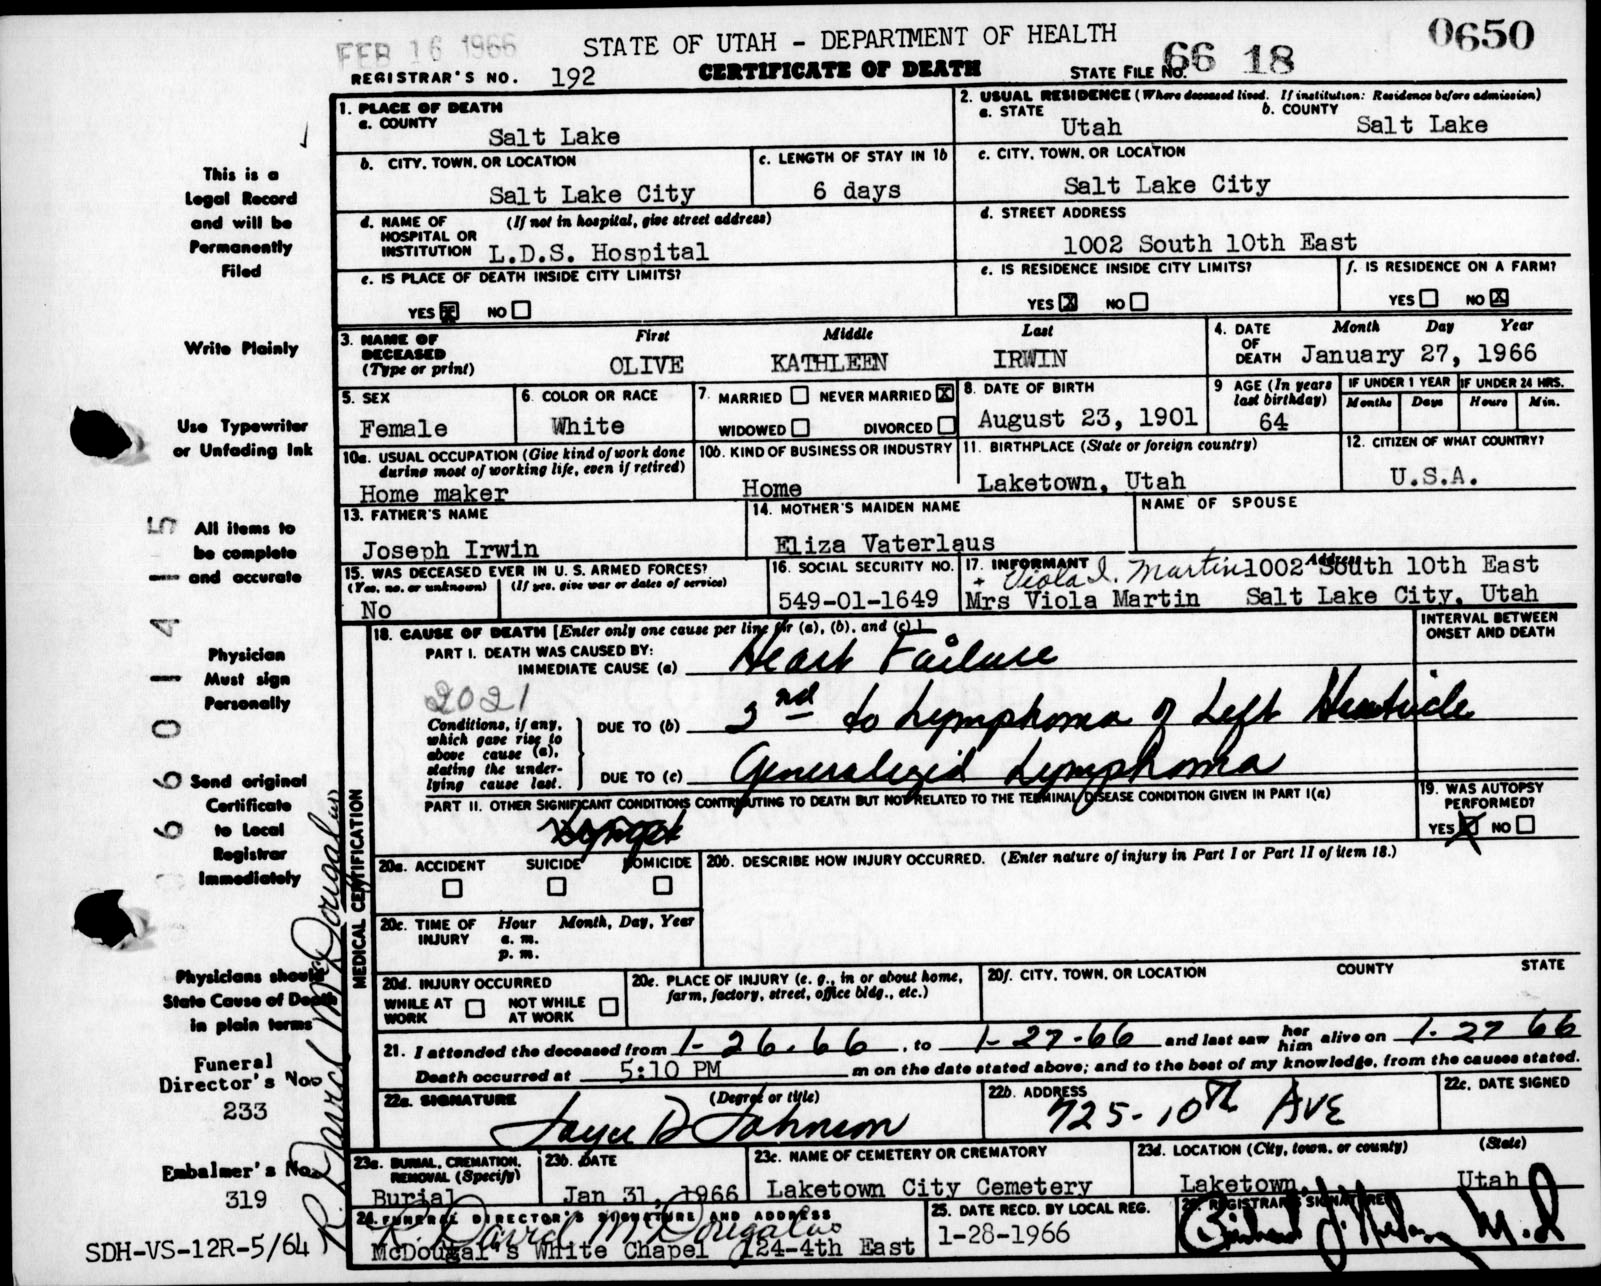 FEB 16 1966
STATE OF UTAH - DEPARTMENT OF HEALTH
0650
REGISTRAR'S NO. 192
CERTIFICATE OF DEATH
STATE FILE NO. 66 18
1. PLACE OF DEATH
a. COUNTY
Salt Lake
2. USUAL RESIDENCE (Where deceased lived. If institution: Residence before admission)
a. STATE
Utah
b. COUNTY
Salt Lake
b. CITY, TOWN, OR LOCATION
Salt Lake City
c. LENGTH OF STAY IN 1b
6 days
c. CITY, TOWN, OR LOCATION
Salt Lake City
d. NAME OF HOSPITAL OR INSTITUTION
(If not in hospital, give street address)
L.D.S. Hospital
d. STREET ADDRESS
1002 South 10th East
e. IS PLACE OF DEATH INSIDE CITY LIMITS?
YES X NO
e. IS RESIDENCE INSIDE CITY LIMITS?
YES X NO
f. IS RESIDENCE ON A FARM?
YES NO X
3. NAME OF DECEASED (Type or print)
First Middle Last
OLIVE KATHLEEN IRWIN
4. DATE OF DEATH
Month Day Year
January 27, 1966
5. SEX
Female
6. COLOR OR RACE
White
7. MARRIED NEVER MARRIED X
WIDOWED DIVORCED
8. DATE OF BIRTH
August 23, 1901
9 AGE (In years last birthday)
64
IF UNDER 1 YEAR
Months Days
IF UNDER 24 HRS.
Hours Min.
10a. USUAL OCCUPATION (Give kind of work done during most of working life, even if retired)
Home maker
10b. KIND OF BUSINESS OR INDUSTRY
Home
11. BIRTHPLACE (State or foreign country)
Laketown, Utah
12. CITIZEN OF WHAT COUNTRY?
U.S.A.
13. FATHER'S NAME
Joseph Irwin
14. MOTHER'S MAIDEN NAME
Eliza Vaterlaus
NAME OF SPOUSE
15. WAS DECEASED EVER IN U. S. ARMED FORCES?
(Yes, no, or unknown) (If yes, give war or dates of service)
No
16. SOCIAL SECURITY NO.
549-01-1649
17. INFORMANT Address
+ Viola I. Martin 1002 South 10th East
Mrs Viola Martin Salt Lake City, Utah
18. CAUSE OF DEATH [Enter only one cause per line for (a), (b), and (c).]
INTERVAL BETWEEN ONSET AND DEATH
PART I. DEATH WAS CAUSED BY:
IMMEDIATE CAUSE (a) Heart Failure
2021
Conditions, if any, which gave rise to above cause (a), stating the underlying cause last.
DUE TO (b) 2nd to Lymphoma of Left Ventricle
DUE TO (c) Generalized Lymphoma
PART II. OTHER SIGNIFICANT CONDITIONS CONTRIBUTING TO DEATH BUT NOT RELATED TO THE TERMINAL DISEASE CONDITION GIVEN IN PART I(a)
19. WAS AUTOPSY PERFORMED?
YES X NO
20a. ACCIDENT SUICIDE HOMICIDE
20b. DESCRIBE HOW INJURY OCCURRED. (Enter nature of injury in Part I or Part II of item 18.)
20c. TIME OF INJURY
Hour Month, Day, Year
a. m.
p. m.
20d. INJURY OCCURRED
WHILE AT WORK NOT WHILE AT WORK
20e. PLACE OF INJURY (e. g., in or about home, farm, factory, street, office bldg., etc.)
20f. CITY, TOWN, OR LOCATION COUNTY STATE
21. I attended the deceased from 1-26-66, to 1-27-66 and last saw her him alive on 1-27 66
Death occurred at 5:10 PM m on the date stated above; and to the best of my knowledge, from the causes stated.
22a. SIGNATURE (Degree or title)
Johnson
22b. ADDRESS
725-10th AVE
22c. DATE SIGNED
23a. BURIAL, CREMATION, REMOVAL (Specify)
Burial
23b. DATE
Jan 31, 1966
23c. NAME OF CEMETERY OR CREMATORY
Laketown City Cemetery
23d. LOCATION (City, town, or county) (State)
Laketown, Utah
24. FUNERAL DIRECTOR'S SIGNATURE AND ADDRESS
R. David McDougal
McDougal's White Chapel 124-4th East
25. DATE RECD. BY LOCAL REG.
1-28-1966
26. REGISTRAR'S SIGNATURE
M.D
MEDICAL CERTIFICATION
This is a
Legal Record
and will be
Permanently
Filed
Write Plainly
Use Typewriter
or Unfading Ink
All items to
be complete
and accurate
Physician
Must sign
Personally
Send original
Certificate
to Local
Registrar
Immediately
Physicians should
State Cause of Death
in plain terms
Funeral
Director's No.
233
Embalmer's No.
319
R. David McDougal
66 01 41 5
SDH-VS-12R-5/64